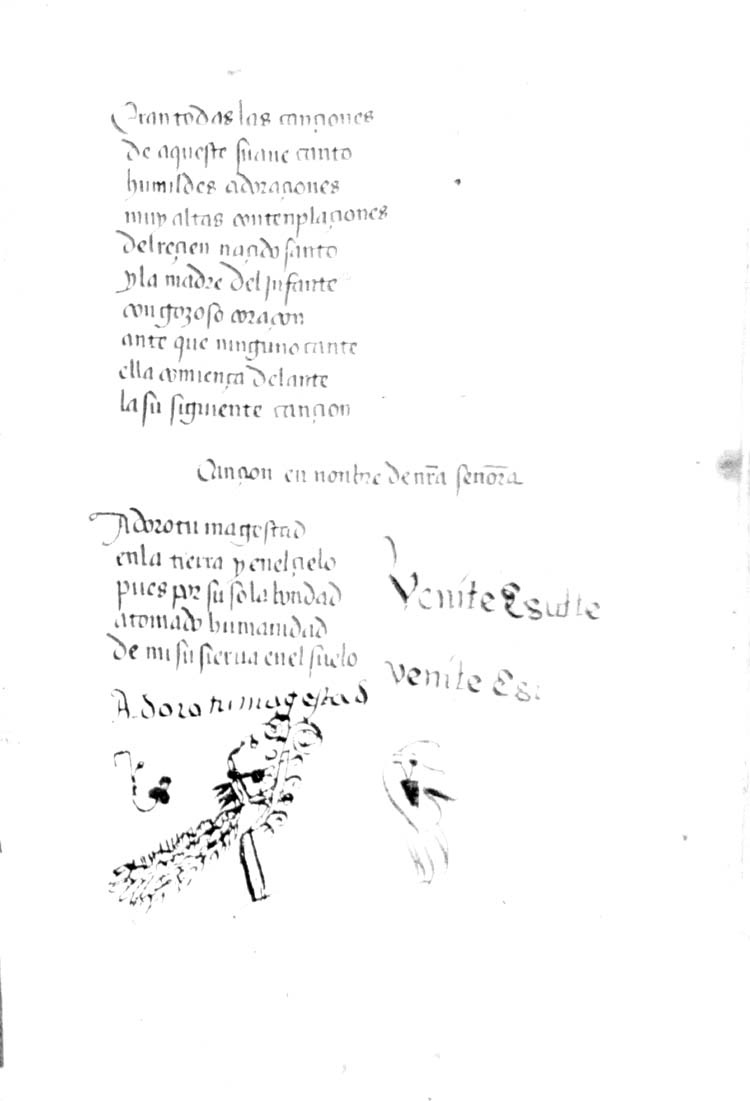 Eran todas las cançiones
de aqueste suaue canto
humildes adoraçiones
muy altas contenplaçiones
del reçien naçido santo
y la madre del jnfante
con gozoso coraçon
ante que ninguno cante
ella comiença delante
la su siguiente cançion
Cançion en nonbre de nr̃a señora
Adoro tu magestad
en la tierra y en el çielo
pues por su sola bondad
a tomado humanidad
de mi su sierua en el suelo
Adoro tu magestad
Venite
venite